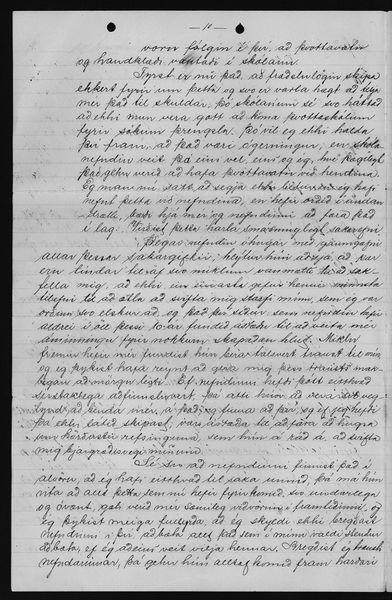 - 10 -
voru fólgin í því, að þvottavatn
og handklæði vantaði í skólann.
Fyrst er nú það, að fræðslulögin skipa
ekkert fyrir um þetta og svo er varla hægt að
mér það til skuldar, þó skólanum sé svo háttað
að ekki mun vera gott að koma þvottaskálum
fyrir sökum þrengsla. Þó vil ég ekki halda
því fram, að það væri ógerningur, en skóla
nefndin veit það eins vel, eins og ég, hve þægilegt
það hefir verið að hafa þvottavatn við hendina.
Eg man nú satt að segja ekki hafi
nefnt þetta við nefndina, en hefi orðið í undan
drætti, bæði hjá mér og nefndinni að fara það
í lag. Virðist þetta harla smásmuglegt sakarefni.
Þegar nefndin íhugar með gaumgæfni
allar þessar sakargiftir, hlýtur hún að sjá, að þar
eru lindar til að svo miklum vanmætti til að sak-
fella mig, að ekki ein einasta gefur henni minnsta
tilefni til að ætla að svifta mig starfi mínu, sem eg var
svo elskur að, eg það því síður, sem nefndin hefir
aldrei í öll þessi 10 ár fundið ástæðu til að veita mér
áminningu fyrir nokkurn skapaðan hlut. Miklu
fremur hefir mér fundist hún bera talsvert traust til mín
og eg þykist hafa reynt að gera mig þess trausts mak-
legan á margan hátt. Ef nefndinni hefði þótt eitthvað
sérstaklega aðfinsluvert, þá átti hún að vera svo veg-
lynd að benda mér á það, og finna að því, og ef eg hefði
þá ekki látið skipast, var ástæða til að fara að hugsa
um harðvítuga refsinguna, sem hún á ráð á, að svifta
mig bjargræðisvegi mínum.
Sé svo að nefndinni finnist það í
alvöru, að eg hafi eitthvað til saka unnið, þá má hún
vita að allt þetta sem nú hefir fyrirkomið, svo undarlega
og óvænt, gæti verið mér sæmileg viðvörun í framtíðinni, og
eg þykist meiga fullyrða, að eg skyldi ekki bregðast
nefndinni í því, að bæta allt það sem í mínu valdi stendur
að bæta, ef eg aðeins veit vilja hennar. Bregðist eg trausti
nefndarinnar, þá getur hún alltaf komið fram harðari